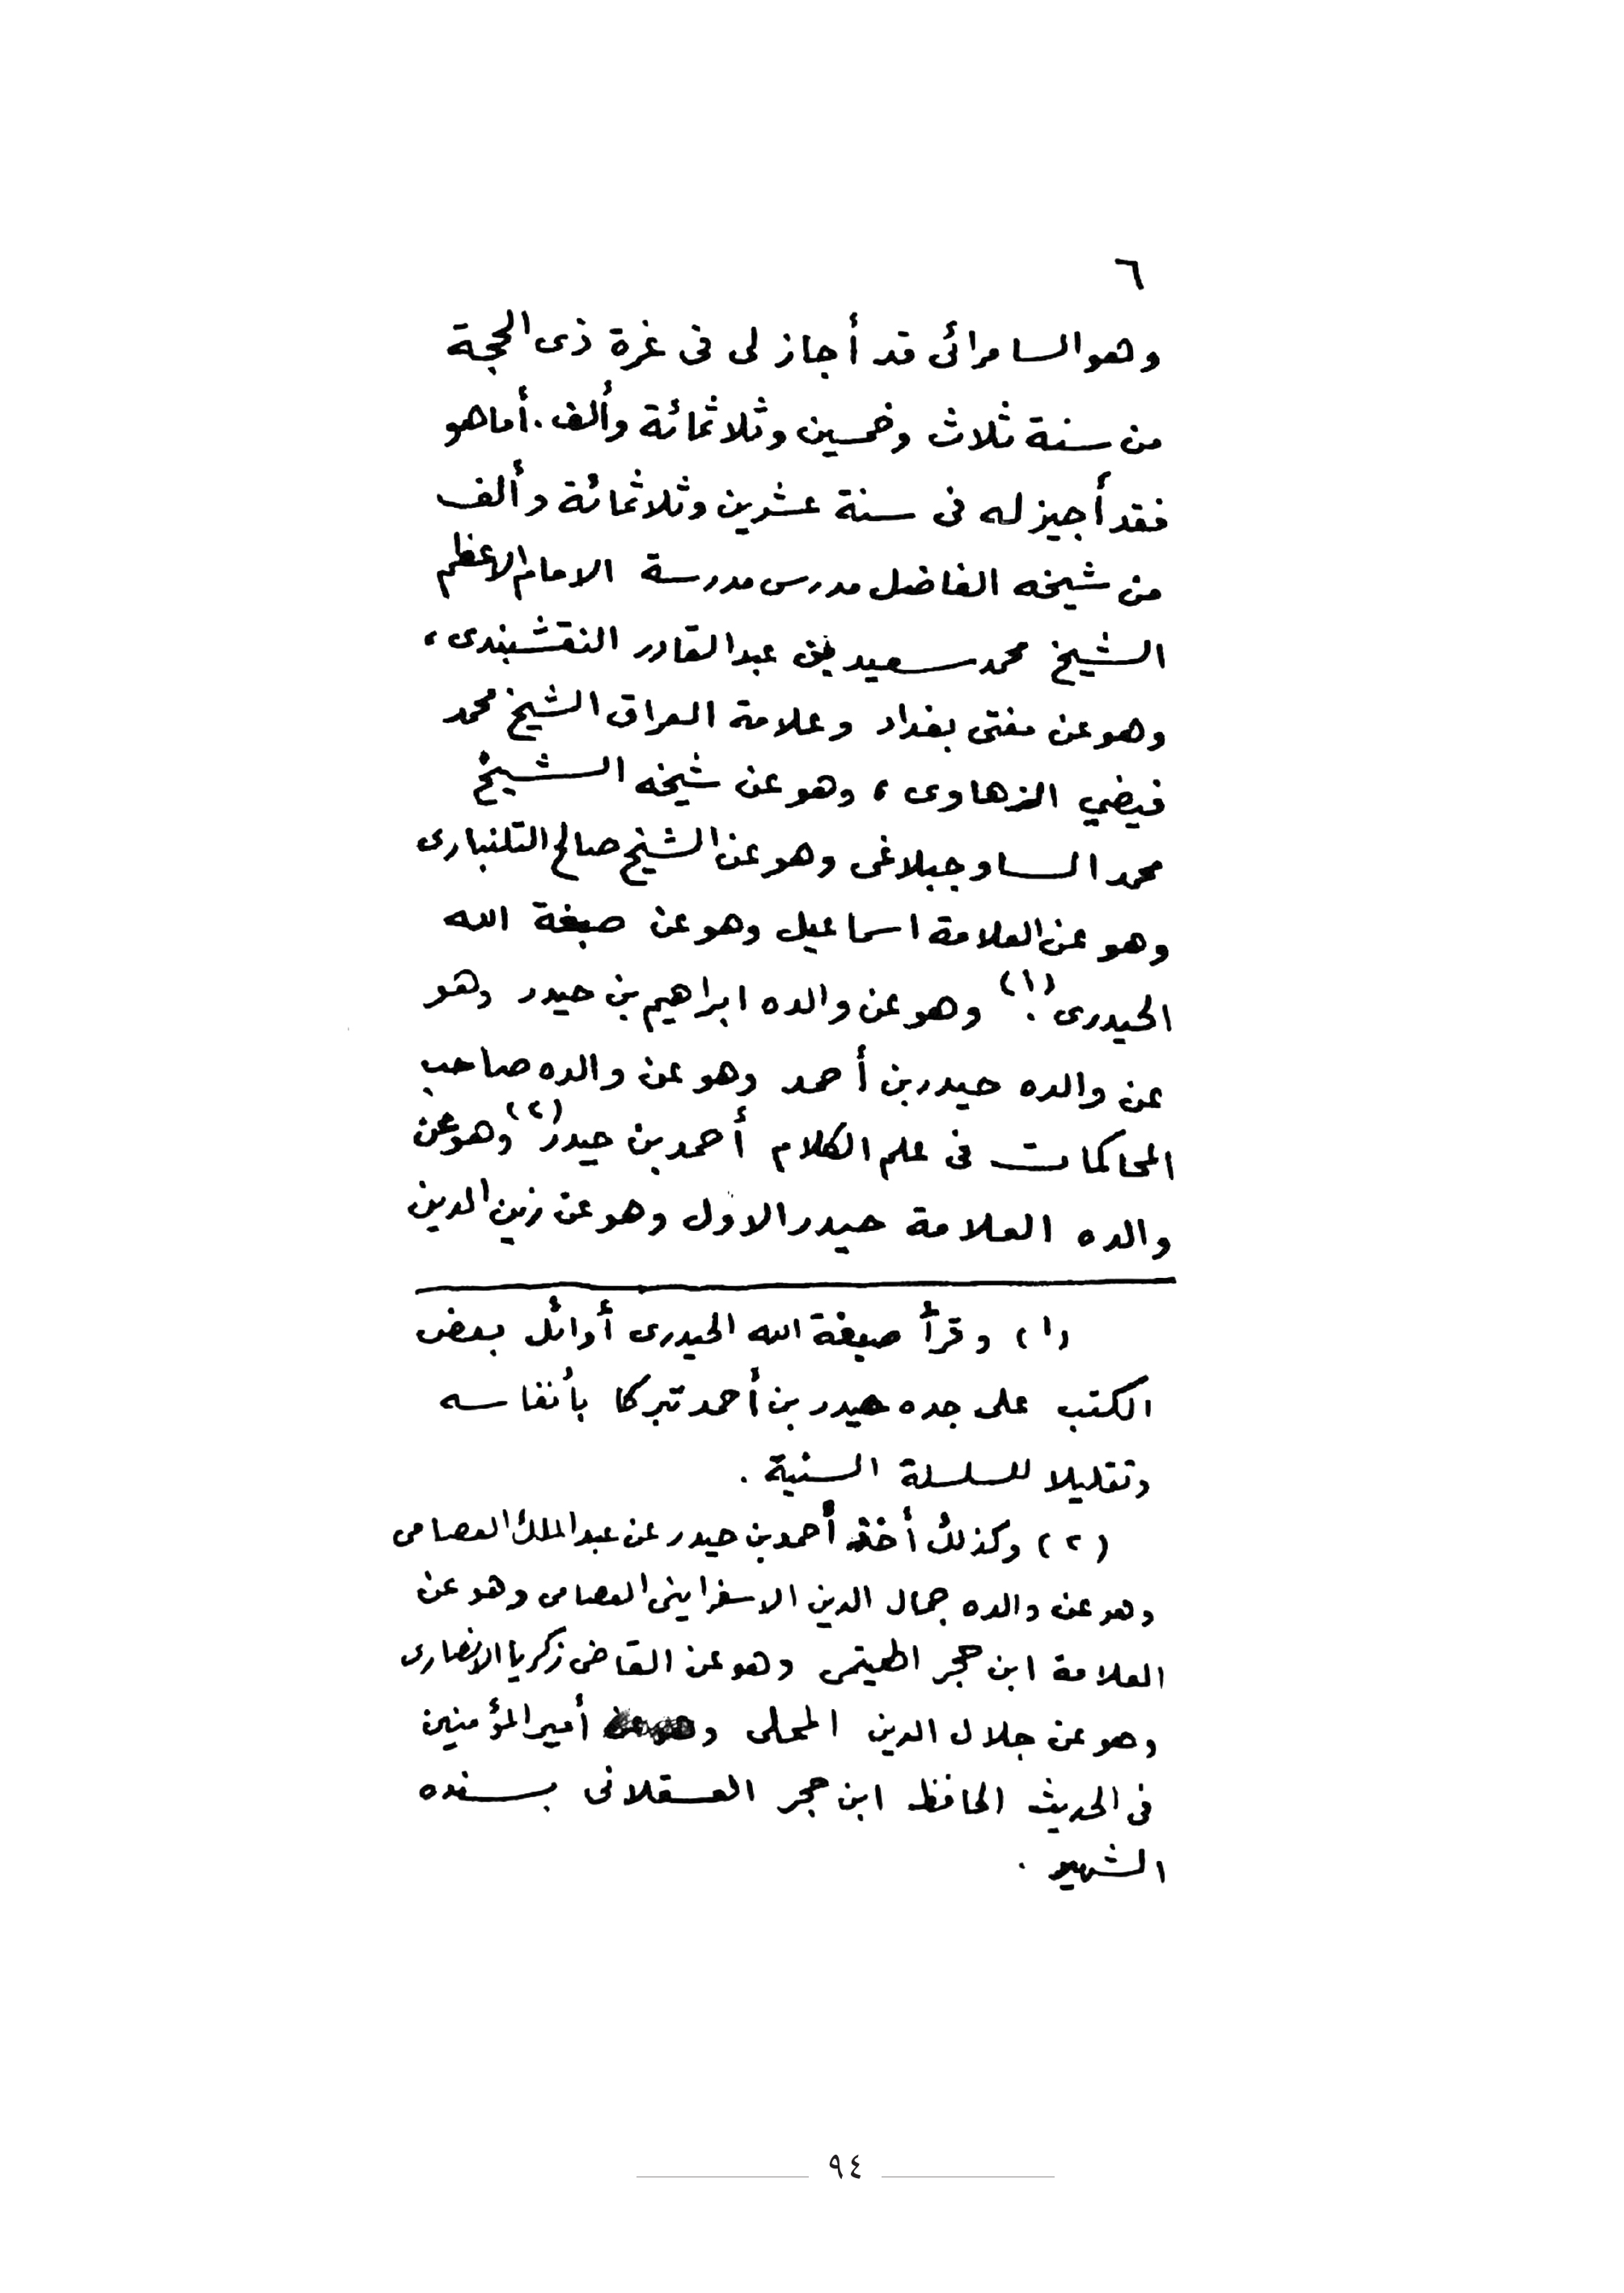 ٦
وهو السامرائى قد أجاز لى فى غرة ذى الحجة
من سنة ثلاث وخمسين وثلاثمائة وألف . أما هو
فقد أجيز له فى سنة عشرين وثلاثمائة وألف
من شيخه الفاضل مدرس مدرسة الامام الاعظم
الشيخ محمد سعيد بن عبد القادر النقشبندى ،
وهو عن مفتى بغداد وعلامة العراق الشيخ محمد
فيضي الزهاوى ، وهو عن شيخه الشيخ
محمد الساوجبلاغى وهو عن الشيخ صالح التلنبارى
وهو عن العلامة اسماعيل وهو عن صبغة الله
الحيدرى (١) وهو عن والده ابراهيم بن حيدر وهو
عن والده حيدر بن أحمد وهو عن والده صاحب
المحاكمات فى علم الكلام أحمد بن حيدر (٢) وهو عن
والده العلامة حيدر الاول وهو عن زين الدين
(١) وقرأ صبغة الله الحيدرى أوائل بعض
الكتب على جده حيدر بن أحمد تبركا بأنفاسه
وتقليلا للسلسلة السنية .
(٢) وكذلك أخذ أحمد بن حيدر عن عبد الملك العصامى
وهو عن والده جمال الدين الاسفراينى العصامى وهو عن
العلامة ابن حجر الهيتمى وهو عن القاضى زكريا الانصارى
وهو عن جلال الدين المحلى و أمير المؤمنين
فى الحديث الحافظ ابن حجر العسقلانى بسنده
الشهير .
٩٤